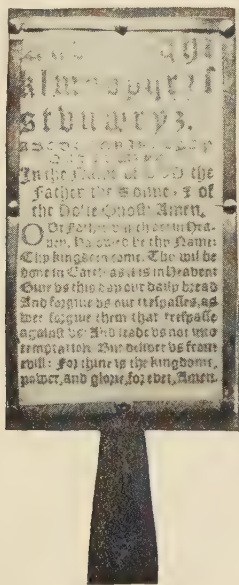 In the Name of GOD the
Father the Sonne, & of
the Holie Ghost: Amen.
OUr Father in hea-
uen, Halowed be thy Name:
Thy kingdom come. Thy wil be
done in Earth as it is in Heauen:
Giue vs this day our daily bread
And forgiue vs our trespasses, as
wee forgiue them that trespasse
against vs: And leade vs not into
temptation. But deliuer vs from
euill: For thine is the kingdome,
power, and glorie, for euer, Amen.